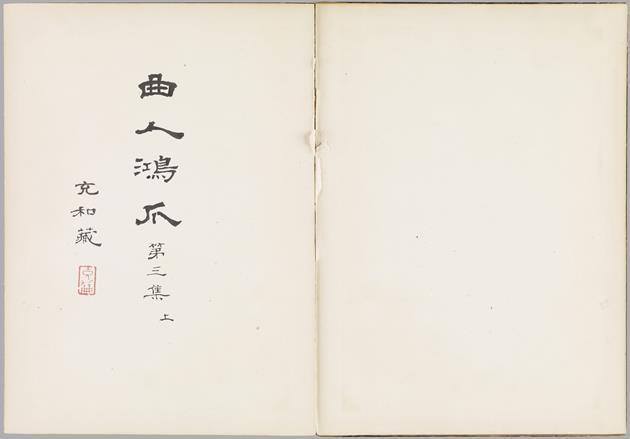 曲人鴻爪第三集上
充和藏